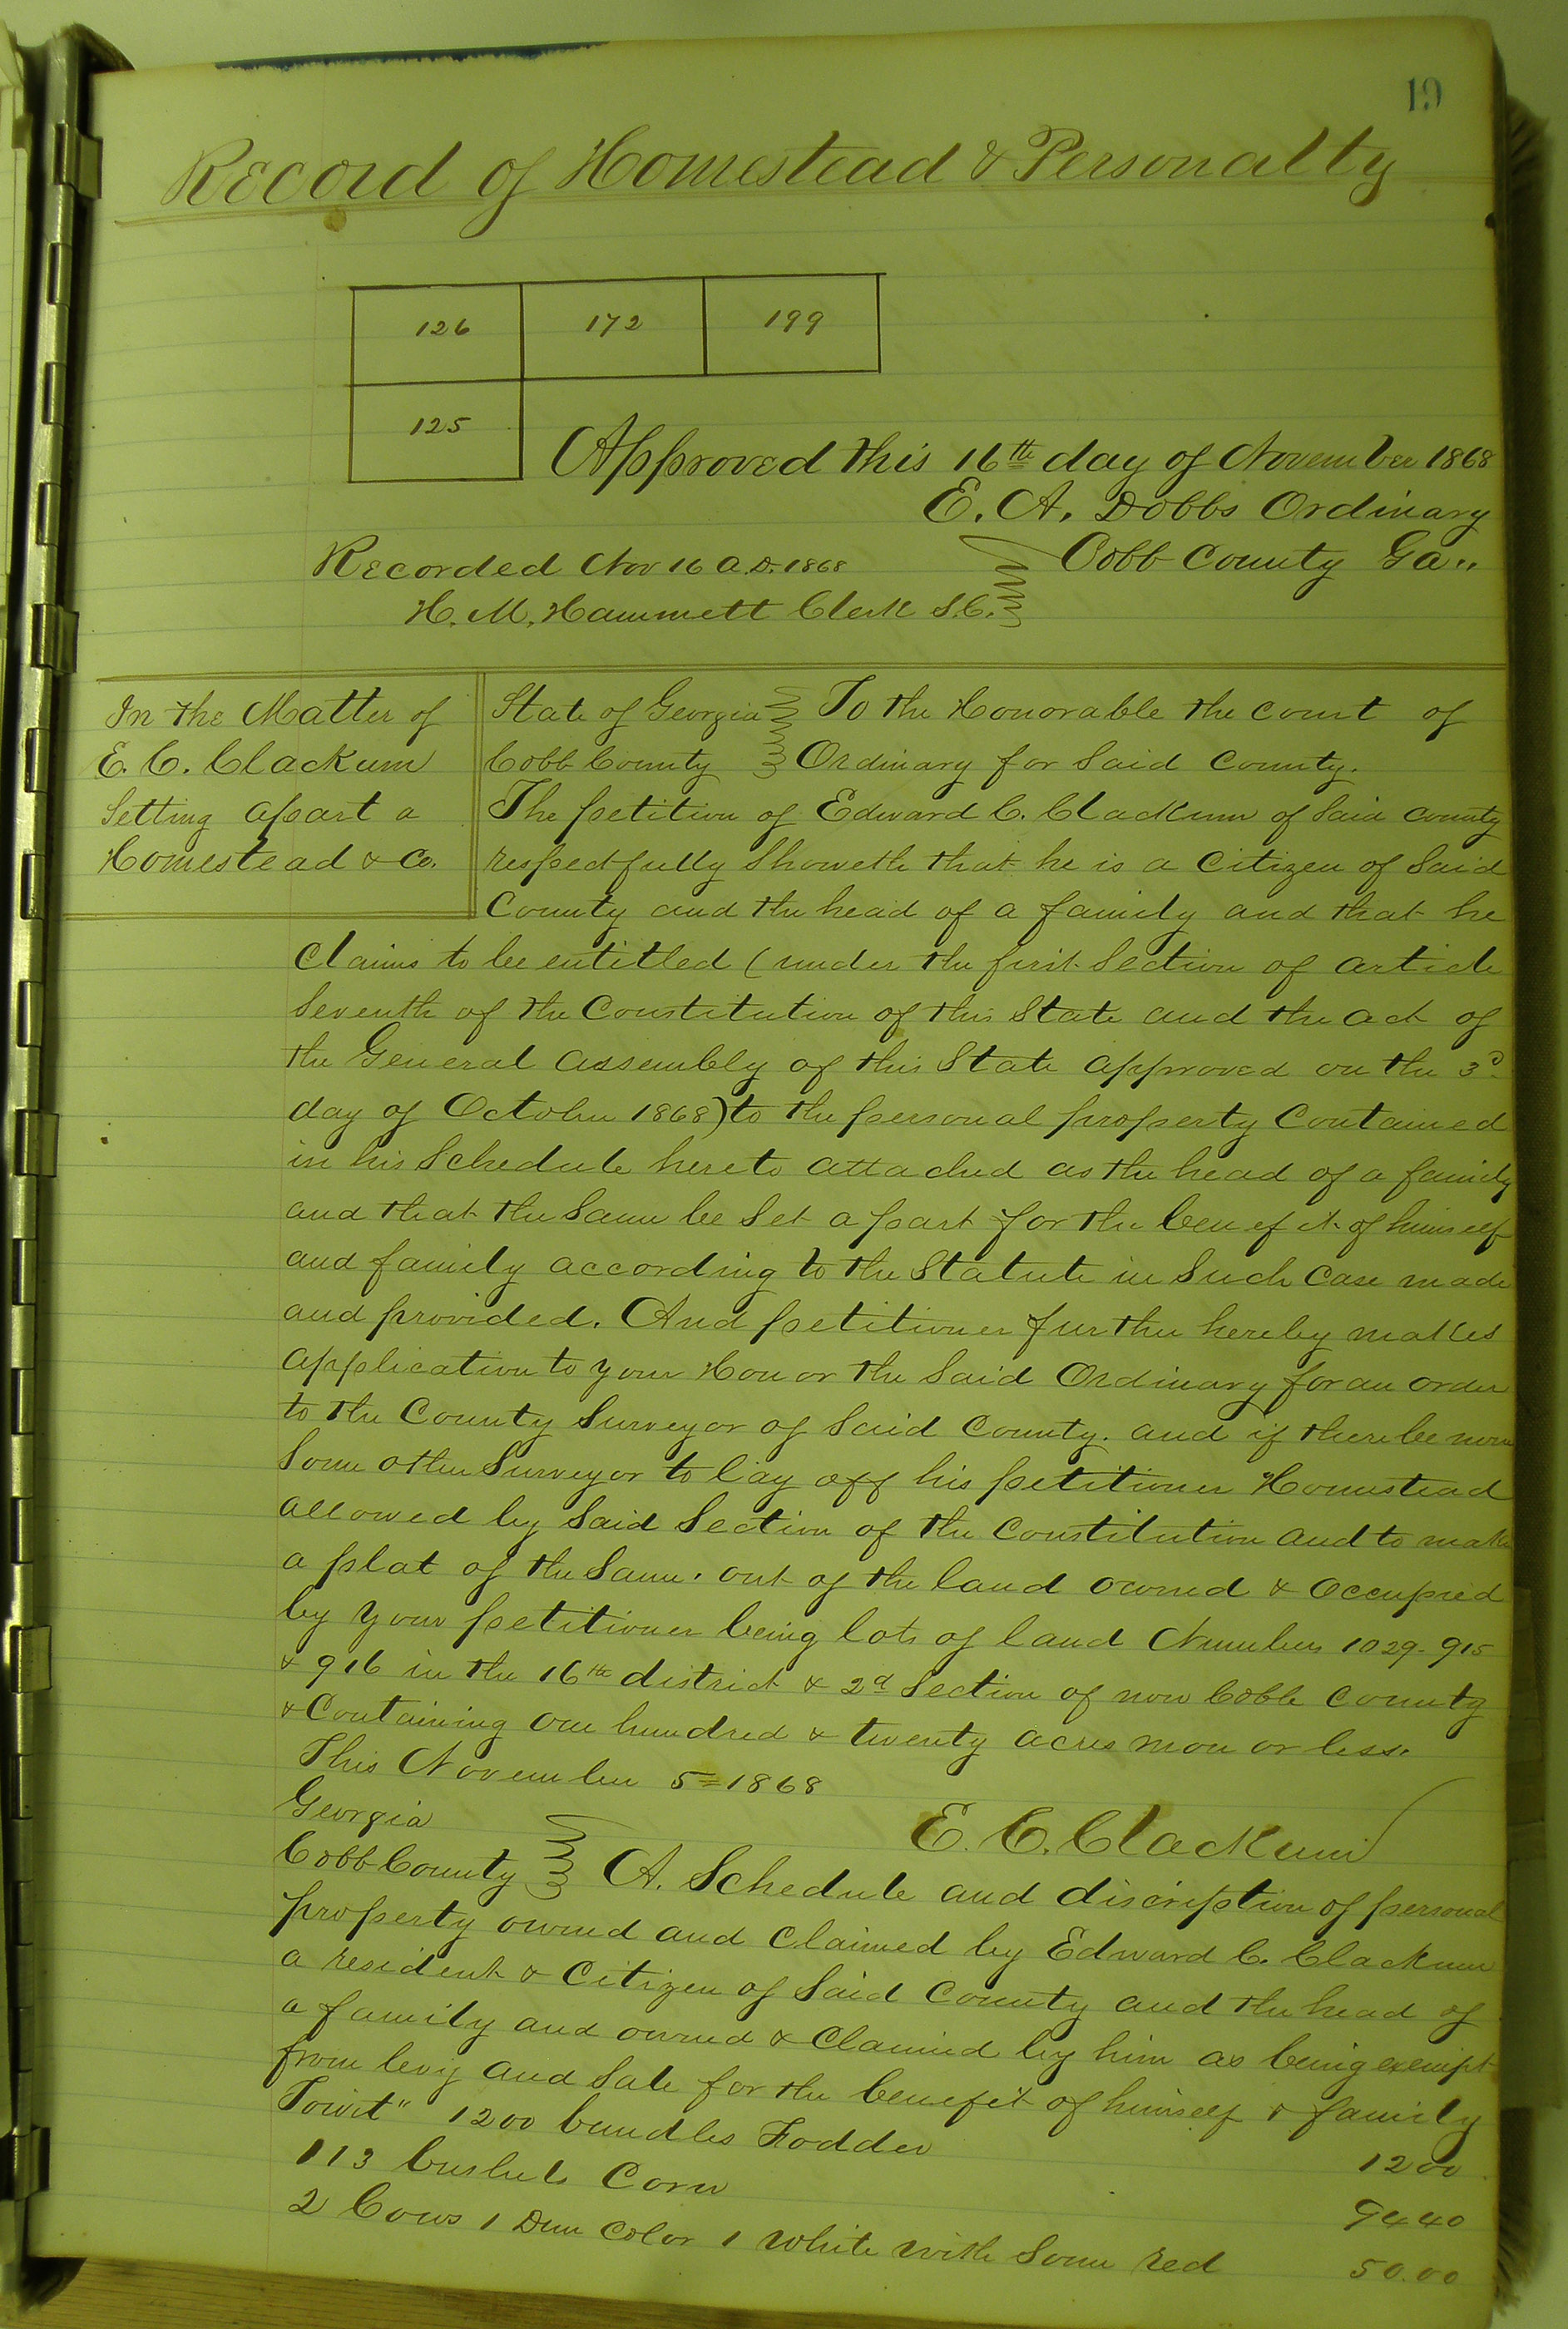 19
Record of Homestead & Personalty
126 172 199
125
Approved this 16th day of November 1868
E. A. Dobbs Ordinary
Cobb County Ga,,
Recorded Nov 16 A.D. 1868
H. M. Hammett Clerk S.C.
In the Matter of
E. C. Clackum
Setting apart a
Homestead & Co.
State of Georgia To the Honorable the court of
Cobb County Ordinary for Said County.
The petition of Edward C. Clackum of Said County
respectfully Showeth that he is a Citizen of Said
County and the head of a family and that he
Claims to be entitled (under the first Section of article
Seventh of the Constitution of this State and the act of
the General assembly of this State approved on the 3d
day of October 1868) to the personal property Contained
in his Schedule hereto attached as the head of a family
and that the Same be Set apart for the benefit of himself
and family according to the Statute in Such Case made
and provided. And petitioner further hereby makes
application to your Honor the Said Ordinary for an order
to the County Surveyor of Said County. and if there be none
Some other Surveyor to lay off his petitioner Homestead
allowed by Said Section of the Constitution and to make
a plat of the Same. out of the land owned & occupied
by your petitioner being lots of land Numbers 1029-915
& 916 in the 16th district & 2d Section of now Cobb County
& Containing one hundred & twenty acres more or less.
This November 5= 1868
E. C. Clackum
Georgia
Cobb County A. Schedule and discription of personal
property owned and Claimed by Edward C. Clackum
a resident & Citizen of Said County and the head of
a family and owned & Claimed by him as being exempt
from levy and Sale for the benefit of himself & family
Towit" 1200 bundles Fodder 1200
113 bushels Corn 9440
2 Cows 1 Dun Color 1 White with Some red 50.00